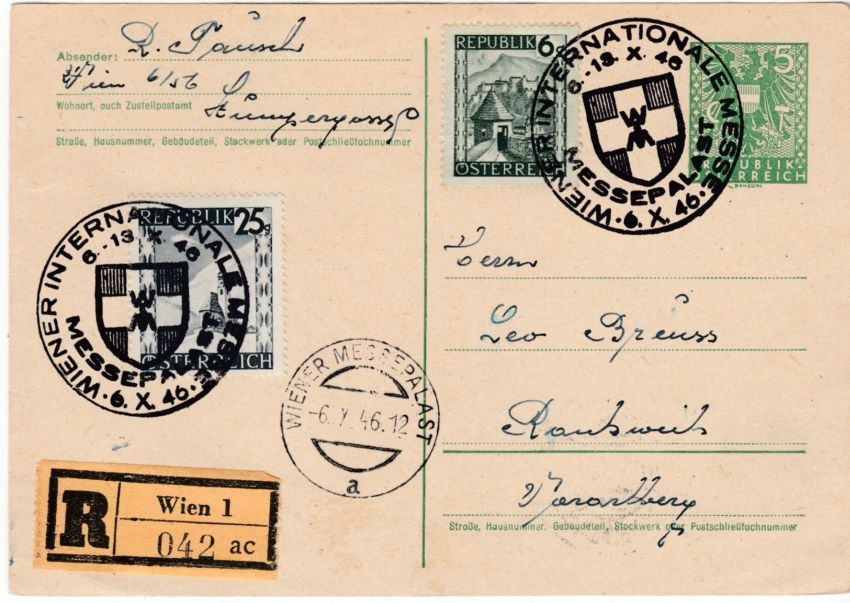 Absender: R. Tausch
Wien 6/56
Wohnort, auch Zustellpostamt
Stumpergasse
Straße, Hausnummer, Gebäudeteil, Stockwerk oder Postschließfachnummer
REPUBLIK 6g
ÖSTERREICH
WIENER INTERNATIONALE MESSE
6.-13. X. 46
WM
MESSEPALAST
6. X. 46
5
REPUBLIK
ÖSTERREICH
REPUBLIK 25g
ÖSTERREICH
WIENER INTERNATIONALE MESSE
6.-13. X. 46
WM
MESSEPALAST
6. X. 46
WIENER MESSEPALAST
-6. X. 46. 12
a
R
Wien 1
042 ac
Herrn
Leo Breuss
Rankweil
Vorarlberg
Straße, Hausnummer, Gebäudeteil, Stockwerk oder Postschließfachnummer